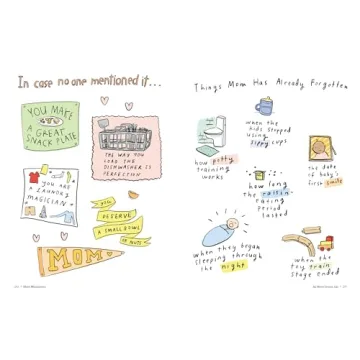 In case no one mentioned it...
YOU MAKE
A GREAT
SNACK PLATE
THE WAY YOU
LOAD THE
DISHWASHER IS
PERFECTION
YOU ARE
A LAUNDRY
MAGICIAN
YOU
DESERVE
A SMALL BOWL
OF NUTS
MOM
Things Mom Has Already Forgotten
how potty
training
works
when the
kids stopped
using
sippy cups
the date
of baby's
first smile
how long
the raisin-
eating
period
lasted
when they began
sleeping through
the night
when the
toy train
stage ended